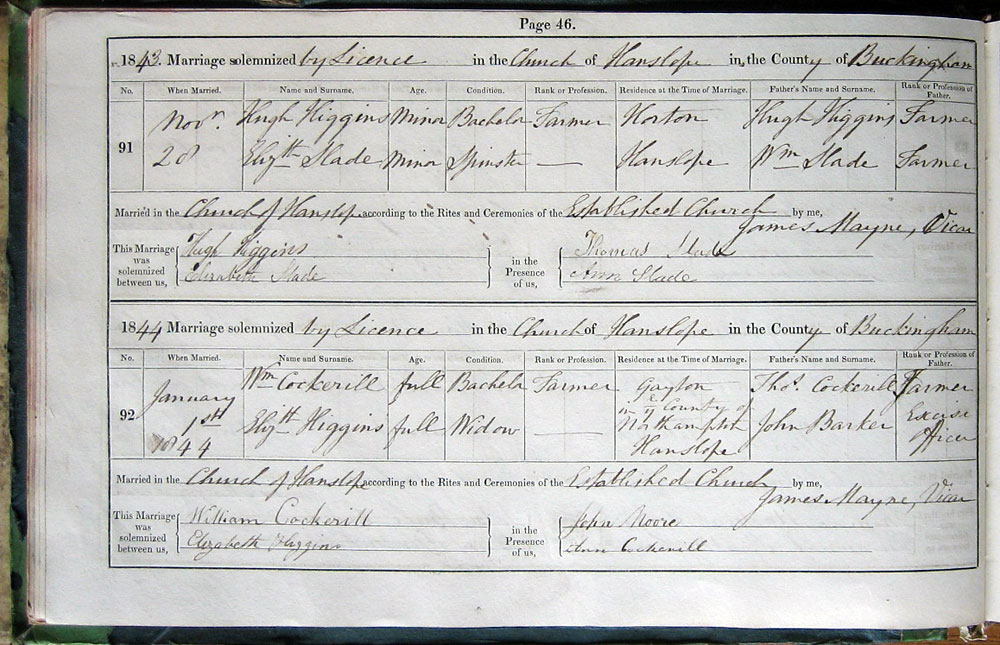 Page 46.
1843. Marriage solemnized by Licence in the Church of Hanslope in the County of Buckingham
No. When Married. Name and Surname. Age. Condition. Rank or Profession. Residence at the Time of Marriage. Father's Name and Surname. Rank or Profession of Father.
91 Novr. 28 Hugh Higgins Minor Bachelor Farmer Horton Hugh Higgins Farmer
Elizth Slade Minor Spinster — Hanslope Wm Slade Farmer
Married in the Church of Hanslope according to the Rites and Ceremonies of the Established Church by me,
James Mayne, Vicar
This Marriage was solemnized between us, Hugh Higgins in the Presence of us, Thomas Slade
Elizabeth Slade Ann Slade
1844 Marriage solemnized by Licence in the Church of Hanslope in the County of Buckingham
No. When Married. Name and Surname. Age. Condition. Rank or Profession. Residence at the Time of Marriage. Father's Name and Surname. Rank or Profession of Father.
92 January 1st 1844 Wm Cockerill full Bachelor Farmer Gayton in ye County of Northampton Thos. Cockerill Farmer
Elizth Higgins full Widow — Hanslope John Barker Excise Officer
Married in the Church of Hanslope according to the Rites and Ceremonies of the Established Church by me,
James Mayne, Vicar
This Marriage was solemnized between us, William Cockerill in the Presence of us, John Moore
Elizabeth Higgins Ann Cockerill